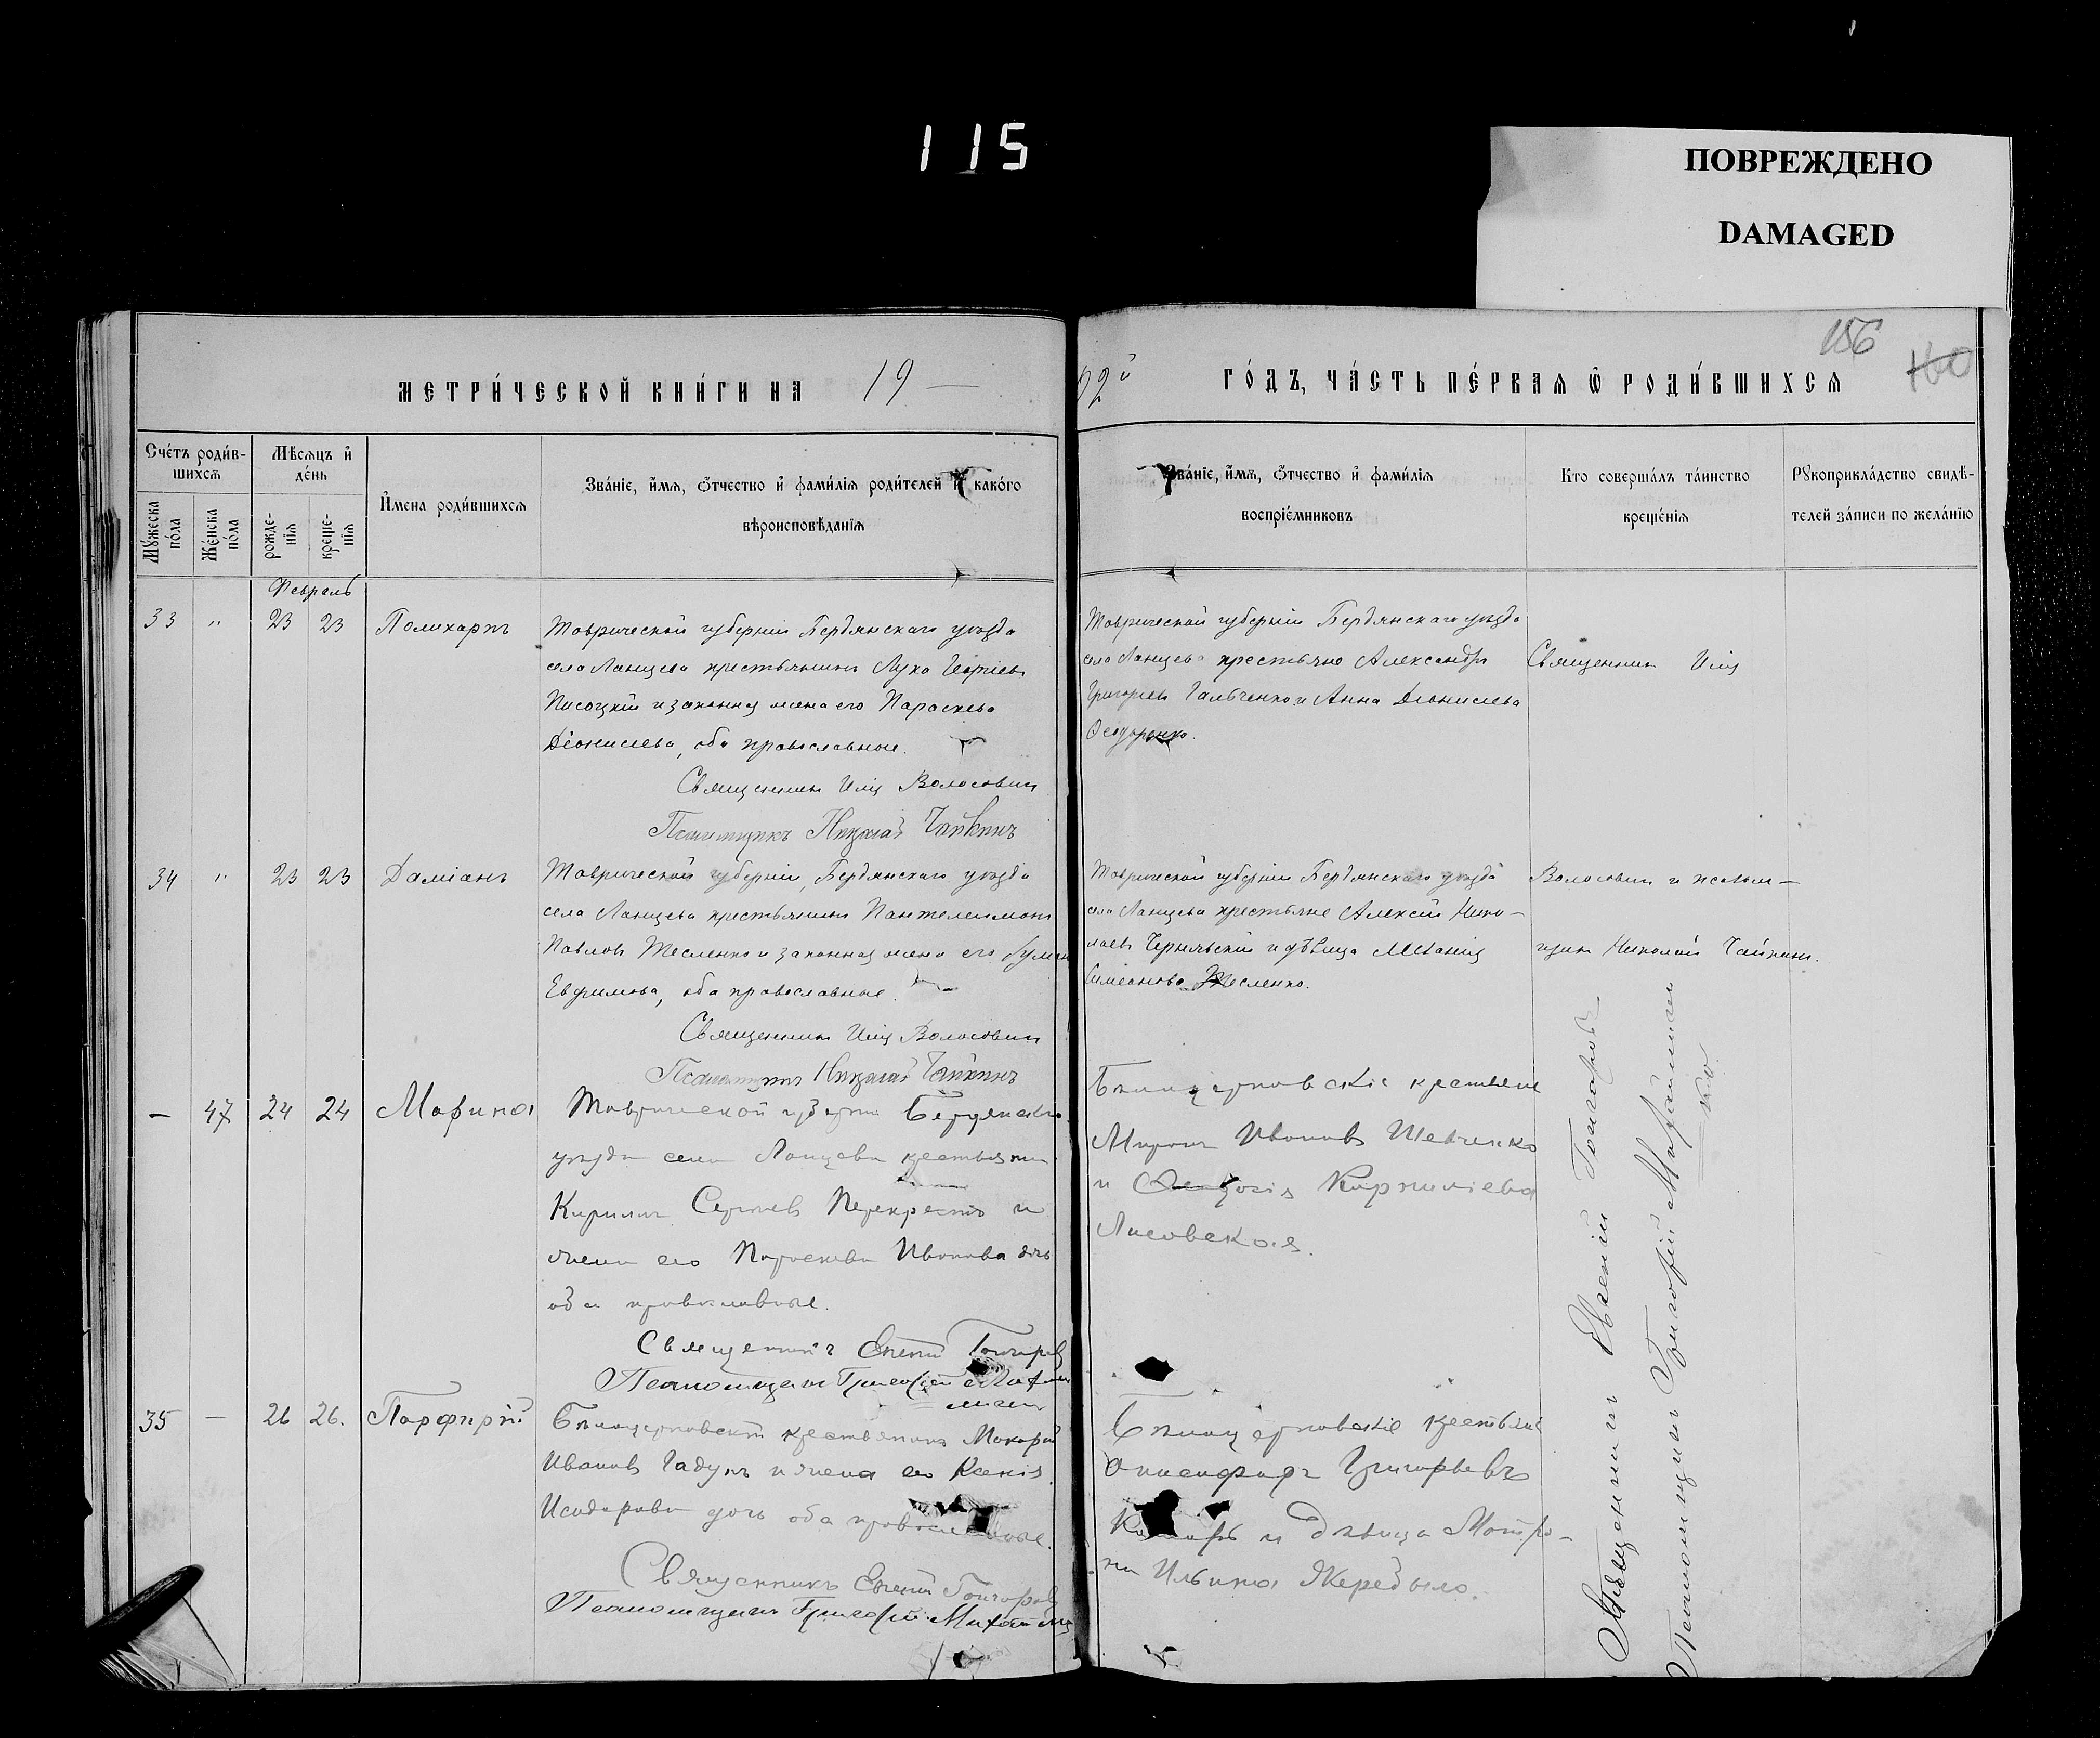 115
ПОВРЕЖДЕНО
DAMAGED
156
160
МЕТРИ́ЧЕСКОЙ КНИ́ГИ НА 19 —
02й ГО́ДЪ, ЧА́СТЬ ПЕ́РВАѦ Ѡ҆ РОДИ́ВШИХСѦ
Сче́тъ роди́в-
шихсѧ
Мꙋ́жеска по́ла
Же́нска по́ла
Мѣ́сѧцъ и҆ де́нь
рожде́-нїѧ
креще́-нїѧ
И҆́мена роди́вшихсѧ
Зва́нїе, и҆́мѧ, ѻ҆́тчество и҆ фами́лїѧ роди́телей и҆ како́го
вѣроисповѣ́данїѧ
Зва́нїе, и҆́мѧ, ѻ҆́тчество и҆ фами́лїѧ
воспрїе́мниковъ
Кто соверша́лъ та́инство
креще́нїѧ
Рꙋкоприкла́дство свидѣ́-
телей за́писи по жела́нїю
Февраль
33 " 23 23 Поликарпъ
Таврической губерніи Бердянскаго уѣзда
села Ланцева крестьянинъ Лука Георгіевъ
Писоцкій и законная жена его Параскева
Діонисіева, оба православные.
Священникъ Илія Волосовин
Псаломщикъ Николай Чайкинъ
Таврической губерніи Бердянскаго уѣзда
села Ланцева крестьяне Александръ
Григорьевъ Гальченко и Анна Діонисіева
Ѳедоренко.
Священникъ Илія
34 " 23 23 Даміанъ
Таврической губерніи, Бердянскаго уѣзда
села Ланцева крестьянинъ Пантелеимонъ
Павловъ Тесленко и законная жена его
Евфимова, оба православные.
Священникъ Илія Волосовин
Псаломщикъ Николай Чайкинъ
Таврической губерніи Бердянскаго уѣзда
села Ланцева крестьяне Алексій Нико-
лаевъ Чернявскій и дѣвица Меланія
Симеонова Тесленко.
Волосовин и псалом-
щикъ Николай Чайкинъ.
— 47 24 24 Марина
Таврической губерніи Бердянскаго
уѣзда села Ланцева крестьянинъ
Кириллъ Сергѣевъ Перекрестъ и
жена его Параскева Иванова дочь
оба православные.
Священникъ Евгеній Гончаровъ
Псаломщикъ Григорій
Бѣлоцерковскіе крестьяне
Миронъ Ивановъ Шевченко
и Ѳеодосія Корниліева
Лисовская.
35 — 26 26. Парфирій
Бѣлоцерковскій крестьянинъ Макарій
Ивановъ Гадунъ и жена его Ксенія
Исидорова дочь оба православные.
Священникъ Евгеній Гончаровъ
Псаломщикъ Григорій
Бѣлоцерковскіе крестьяне
Онисифоръ Григорьевъ
и дѣвица Матро-
на Ильина Жеребыло.
Священникъ Евгеній Гончаровъ
Псаломщикъ Григорій